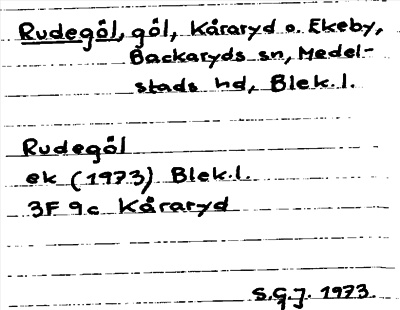 Rudegöl, göl, Kåraryd o. Ekeby,
Backaryds sn, Medel-
stads hd, Blek.l.
Rudegöl
ek (1973) Blek.l.
3F 9c Kåraryd
S.G.J. 1973.